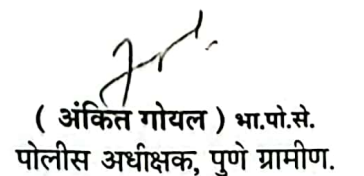 ( अंकित गोयल ) भा.पो.से.
पोलीस अधीक्षक, पुणे ग्रामीण.